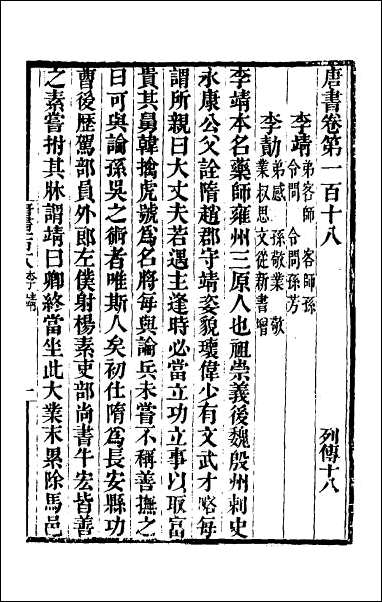 唐書卷第一百十八　列傳十八
李靖　弟客師　客師孫
令問　令問孫芳
李勣　弟感　孫敬業　敬
業叔思文從新書增
李靖本名藥師雍州三原人也祖崇義後魏殷州刺史
永康公父詮隋趙郡守靖姿貌瓌偉少有文武才略每
謂所親曰大丈夫若遇主逢時必當立功立事以取富
貴其舅韓擒虎號爲名將每與論兵未嘗不稱善撫之
曰可與論孫吳之術者唯斯人矣初仕隋爲長安縣功
曹後歷駕部員外郎左僕射楊素吏部尚書牛宏皆善
之素嘗拊其牀謂靖曰卿終當坐此大業末累除馬邑
李靖
一